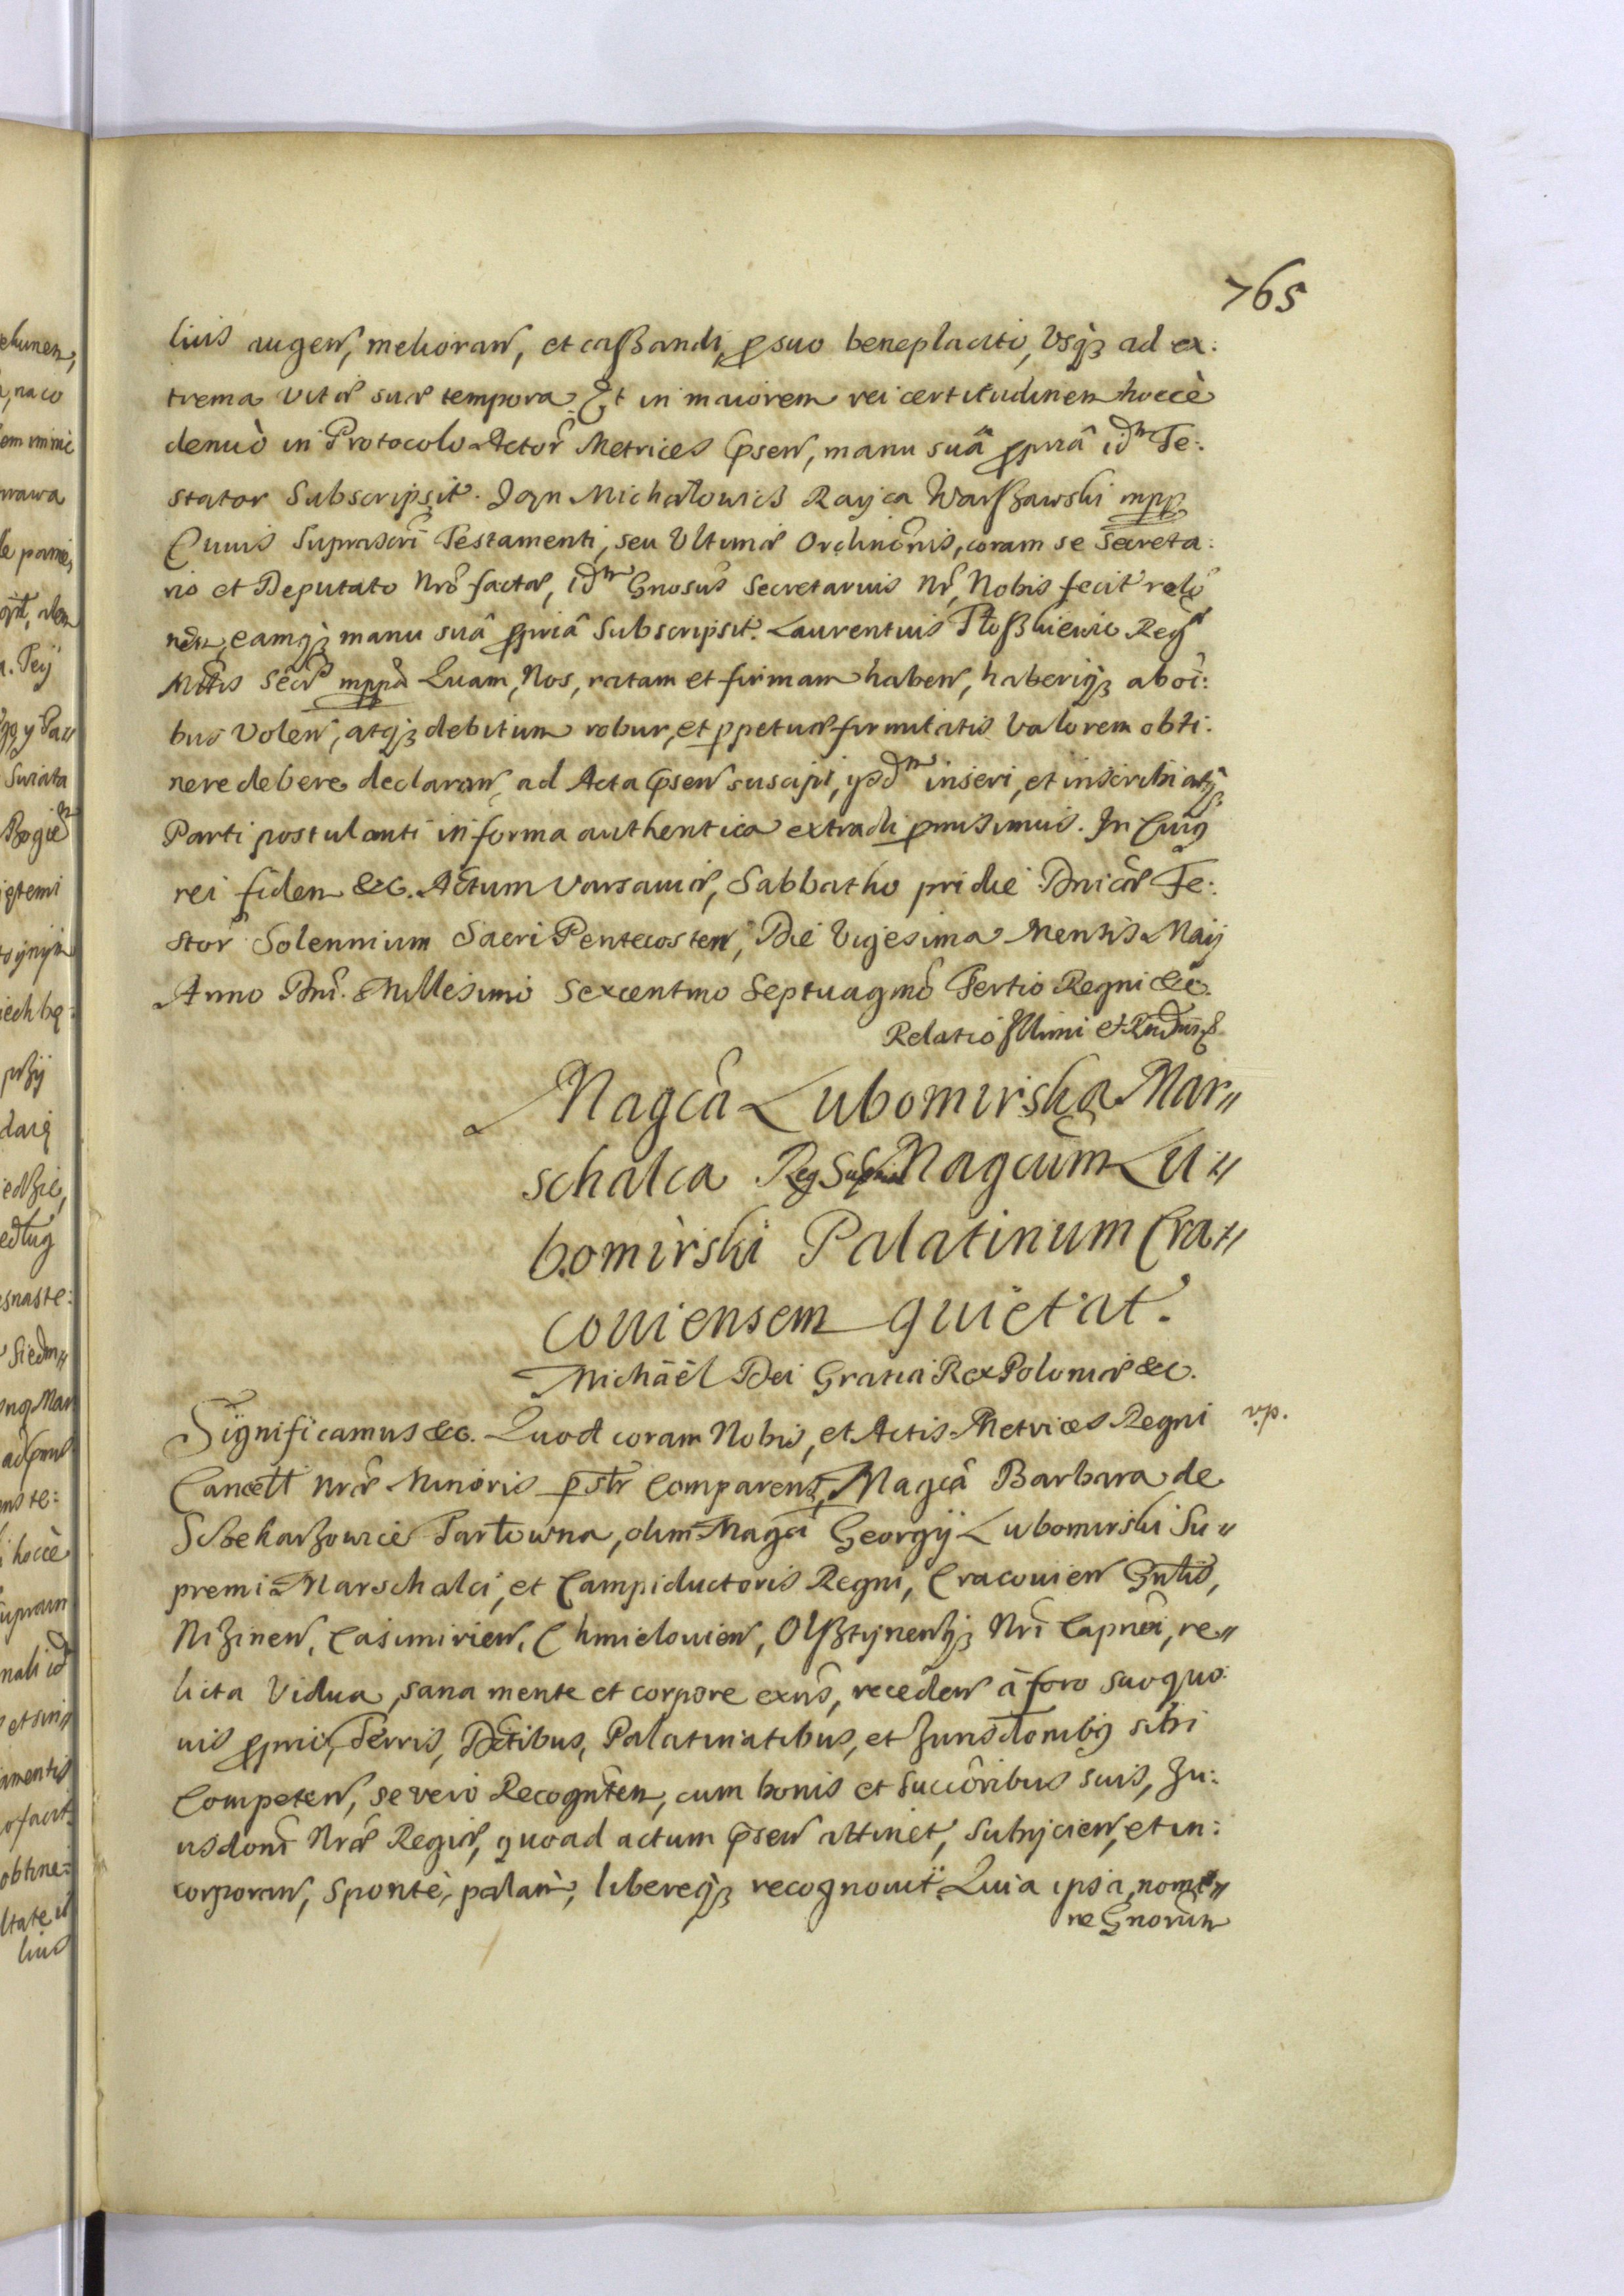 765
lius augen, melioran, et cassandi, p suo beneplacito, Usq3 ad ex:
trema vitæ suæ tempora. Et in maiorem rei certitudinem hocce
denuò in Protocolo Actor Metrices Psen, manu suâ ppriâ idm Te:
stator Subscripsit. Jan Michałowicz Rayca Warszawski mpp.
Cuius Suprascri Testamenti, seu Ultimæ Ordinonis, coram se Secreta:
rio et Deputato Nro factæ, idm Gnosus Secretarius Nr, Nobis fecit relo
nem, eamq3 manu suâ ppriâ Subscripsit. Laurentius Płoszkiewic Reg
Mttis Secr mppa Quam, Nos, ratam et firmam haben, haberiq3 ab oi:
bus Volen, atq3 debitum robur, et ppetuæ firmitatis Valorem obti:
nere debere declaran, ad Acta Psen suscipi, ysdm inseri, et inscribi atq3
Parti postulanti in forma authentica extradi pmisimus. In Cuiq
rei fidem &c. Actum Varsaviæ, Sabbatho pridie Dnicæ Fe:
stor Solennium Sacri Pentecosten, Die Vigesima Mensis Maij
Anno Dni. Millesimo Sexcentmo Septuagmo Tertio Regni &c.
Relatio Illimi et Rndmi &
Magca Lubomirska Mar"
schalca Reg Suprema Magcum Lu"
bomirski Palatinum Cra"
coviensem quietat.
Michäel Dei Gratia Rex Poloniæ &c.
Significamus &c. Quod coram Nobis, et Actis Metrices Regni
v.p.
Cancell Nræ Minoris p str Comparens, Magca Barbara de
Sczekarzowice Tarłowna, olim Magci Georgij Lubomirski Su"
premi Marschalci, et Campiductoris Regni, Cracovien Gnlis,
Nizinen, Casimirien, Chmielovien, Olsztynenq3 Nri Capnei, re"
licta Vidua, sana mente et corpore exns, receden à foro suo quo:
vis pprio, Terris, Dctibus, Palatinatibus, et Jurisdonibq sibi
Competen, se vero Recognten, cum bonis et Succoribus suis, Ju:
risdoni Nræ Regiæ, quoad actum psen attinet, Subijcien, et in:
corporan, Spontè, palam, libereq3 recognouit. Quia ipsa, nomi"
ne Gnorum